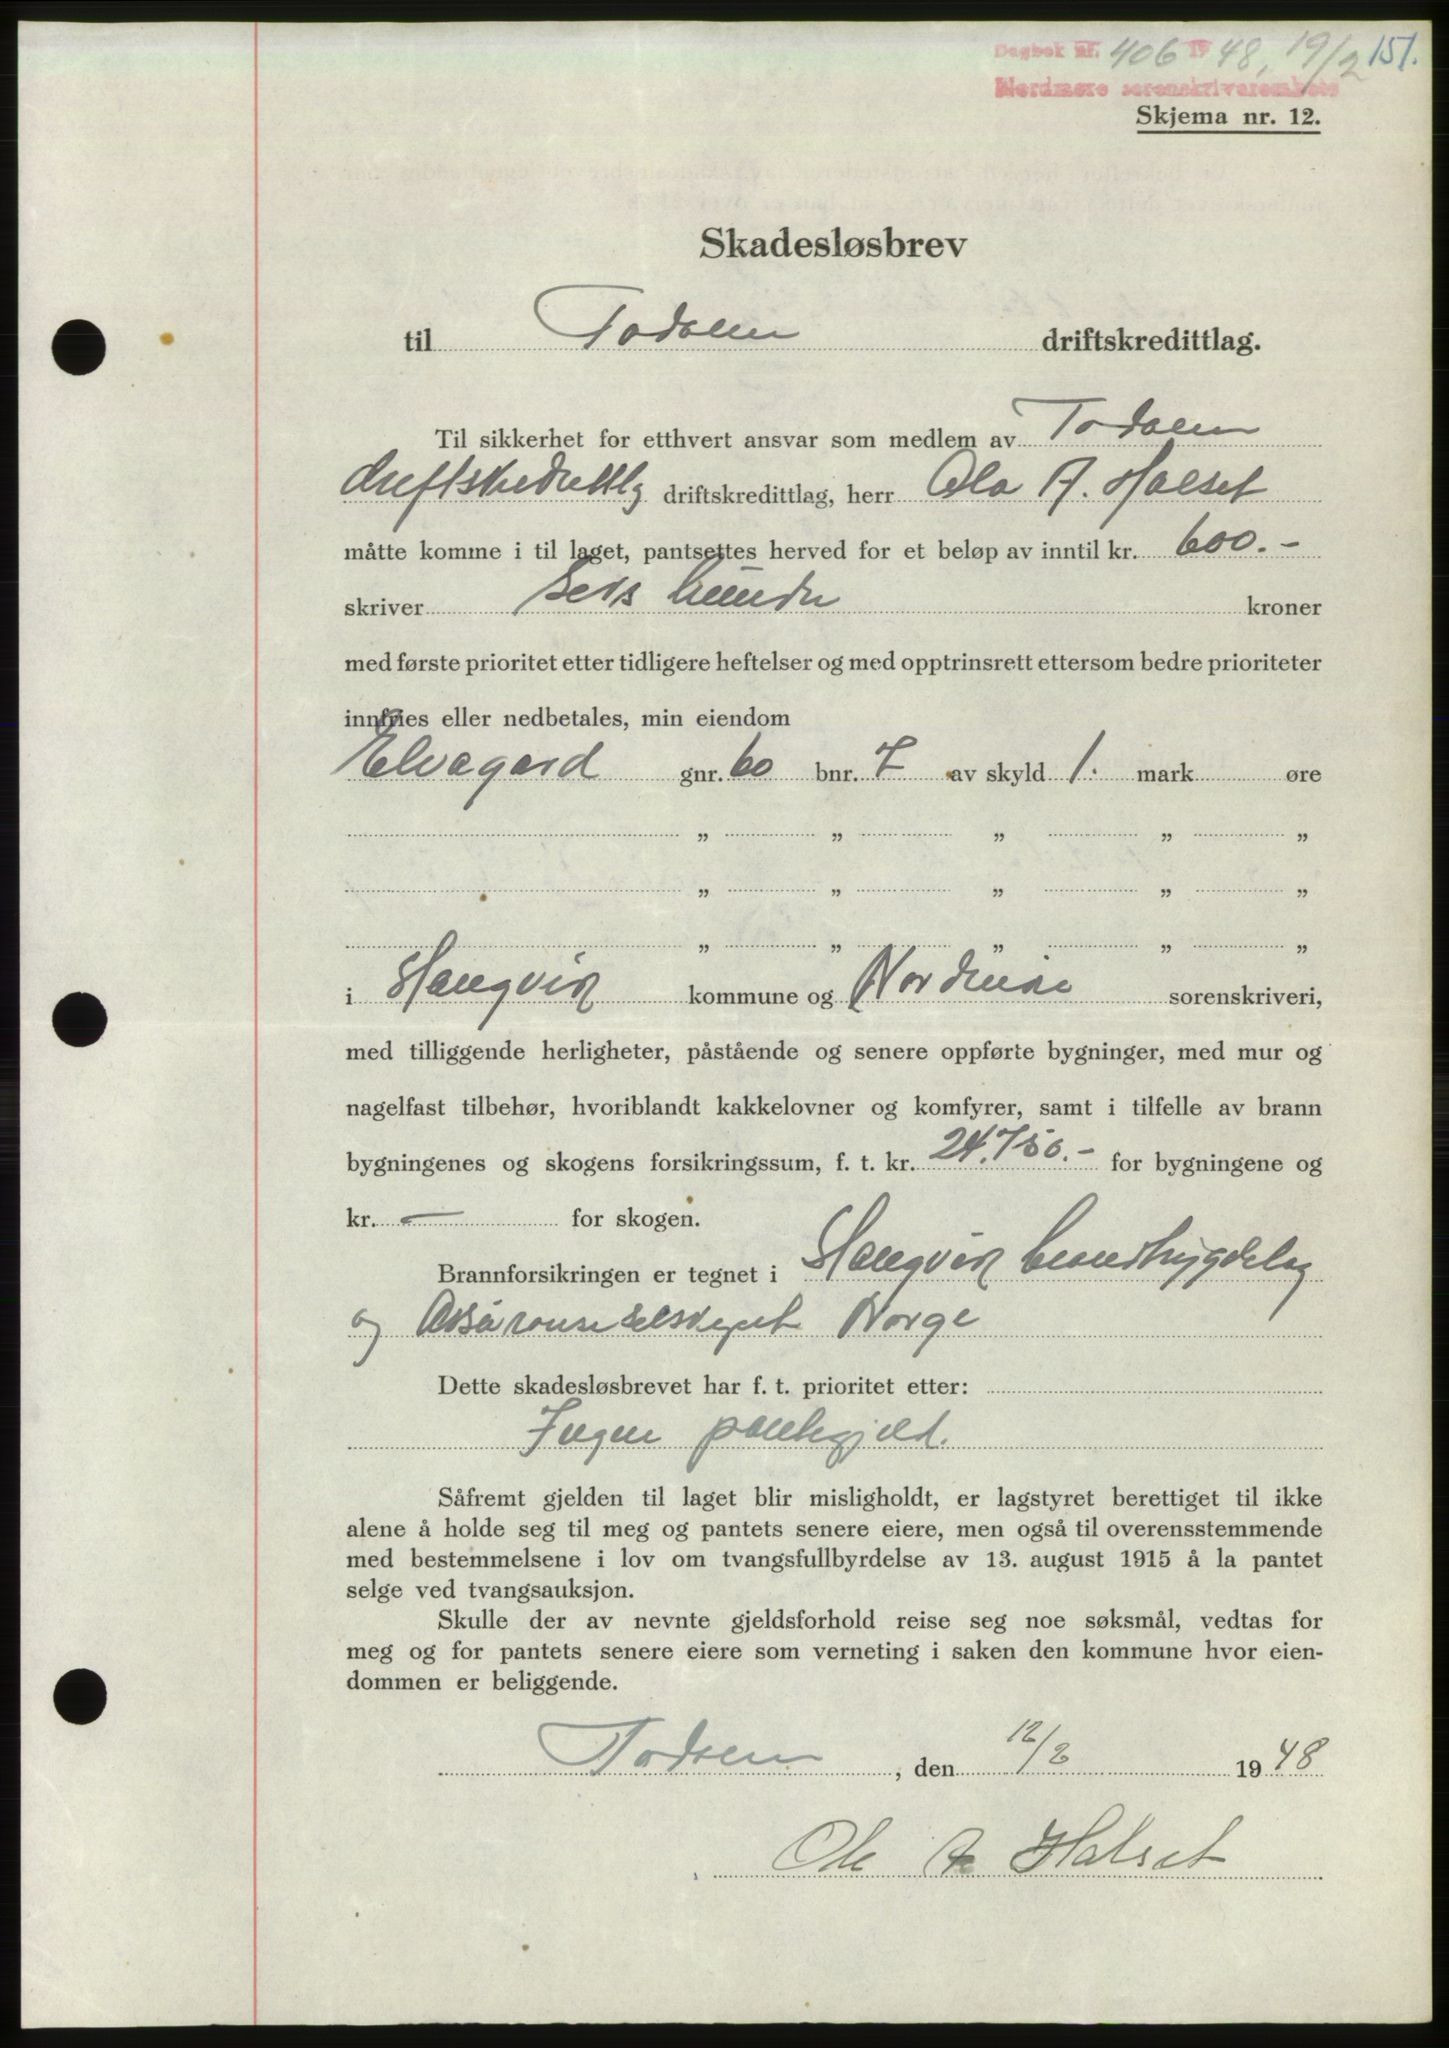 Dagbok nr. 406 1948, 19/2 151.
Nordmøre sorenskriverembete
Skjema nr. 12.
Skadesløsbrev
til Todalen driftskredittlag.
Til sikkerhet for etthvert ansvar som medlem av Todalen
driftskredittlg driftskredittlag, herr Ola A. Halset
måtte komme i til laget, pantsettes herved for et beløp av inntil kr. 600.-
skriver Seks hundre kroner
med første prioritet etter tidligere heftelser og med opptrinsrett ettersom bedre prioriteter
innfries eller nedbetales, min eiendom
Elvagard gnr. 60 bnr. 7 av skyld 1. mark øre
„ „ „ „ „
„ „ „ „ „
„ „ „ „ „
i Stangvik kommune og Nordmøre sorenskriveri,
med tilliggende herligheter, påstående og senere oppførte bygninger, med mur og
nagelfast tilbehør, hvoriblandt kakkelovner og komfyrer, samt i tilfelle av brann
bygningenes og skogens forsikringssum, f. t. kr. 24.750.- for bygningene og
kr. - for skogen.
Brannforsikringen er tegnet i Stangvik brandbygdelag
og Assuranseselskapet Norge
Dette skadesløsbrevet har f. t. prioritet etter:
Ingen pantegjeld.
Såfremt gjelden til laget blir misligholdt, er lagstyret berettiget til ikke
alene å holde seg til meg og pantets senere eiere, men også til overensstemmende
med bestemmelsene i lov om tvangsfullbyrdelse av 13. august 1915 å la pantet
selge ved tvangsauksjon.
Skulle der av nevnte gjeldsforhold reise seg noe søksmål, vedtas for
meg og for pantets senere eiere som verneting i saken den kommune hvor eien-
dommen er beliggende.
Todalen, den 12/2 1948
Ole A Halset